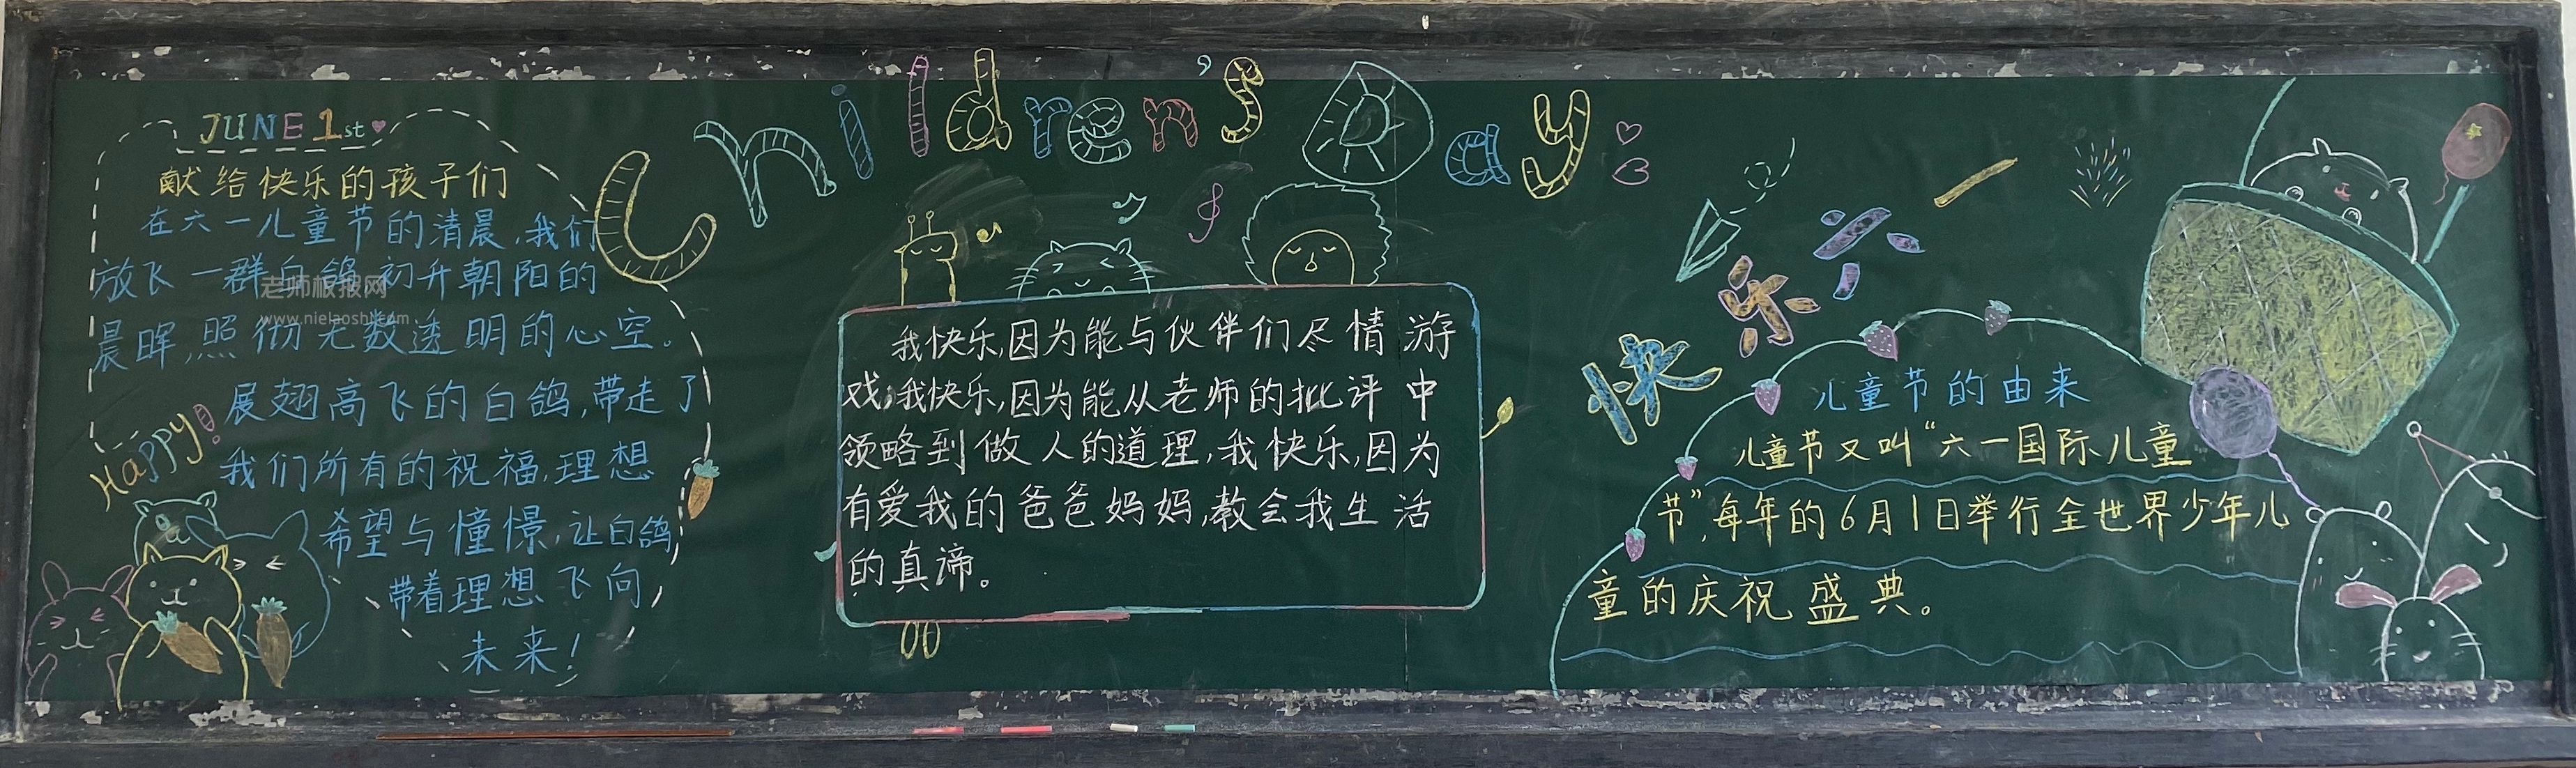 Children's Day
JUNE 1st
献给快乐的孩子们
在六一儿童节的清晨,我们
放飞一群白鸽,初升朝阳的
晨晖,照彻无数透明的心空。
展翅高飞的白鸽,带走了
我们所有的祝福,理想
希望与憧憬,让白鸽
带着理想飞向
未来!
Happy!
老师板报网
www.nielaoshi.com
我快乐,因为能与伙伴们尽情游
戏,我快乐,因为能从老师的批评中
领略到做人的道理,我快乐,因为
有爱我的爸爸妈妈,教会我生活
的真谛。
快乐六一
儿童节的由来
儿童节又叫“六一国际儿童
节”,每年的6月1日举行全世界少年儿
童的庆祝盛典。